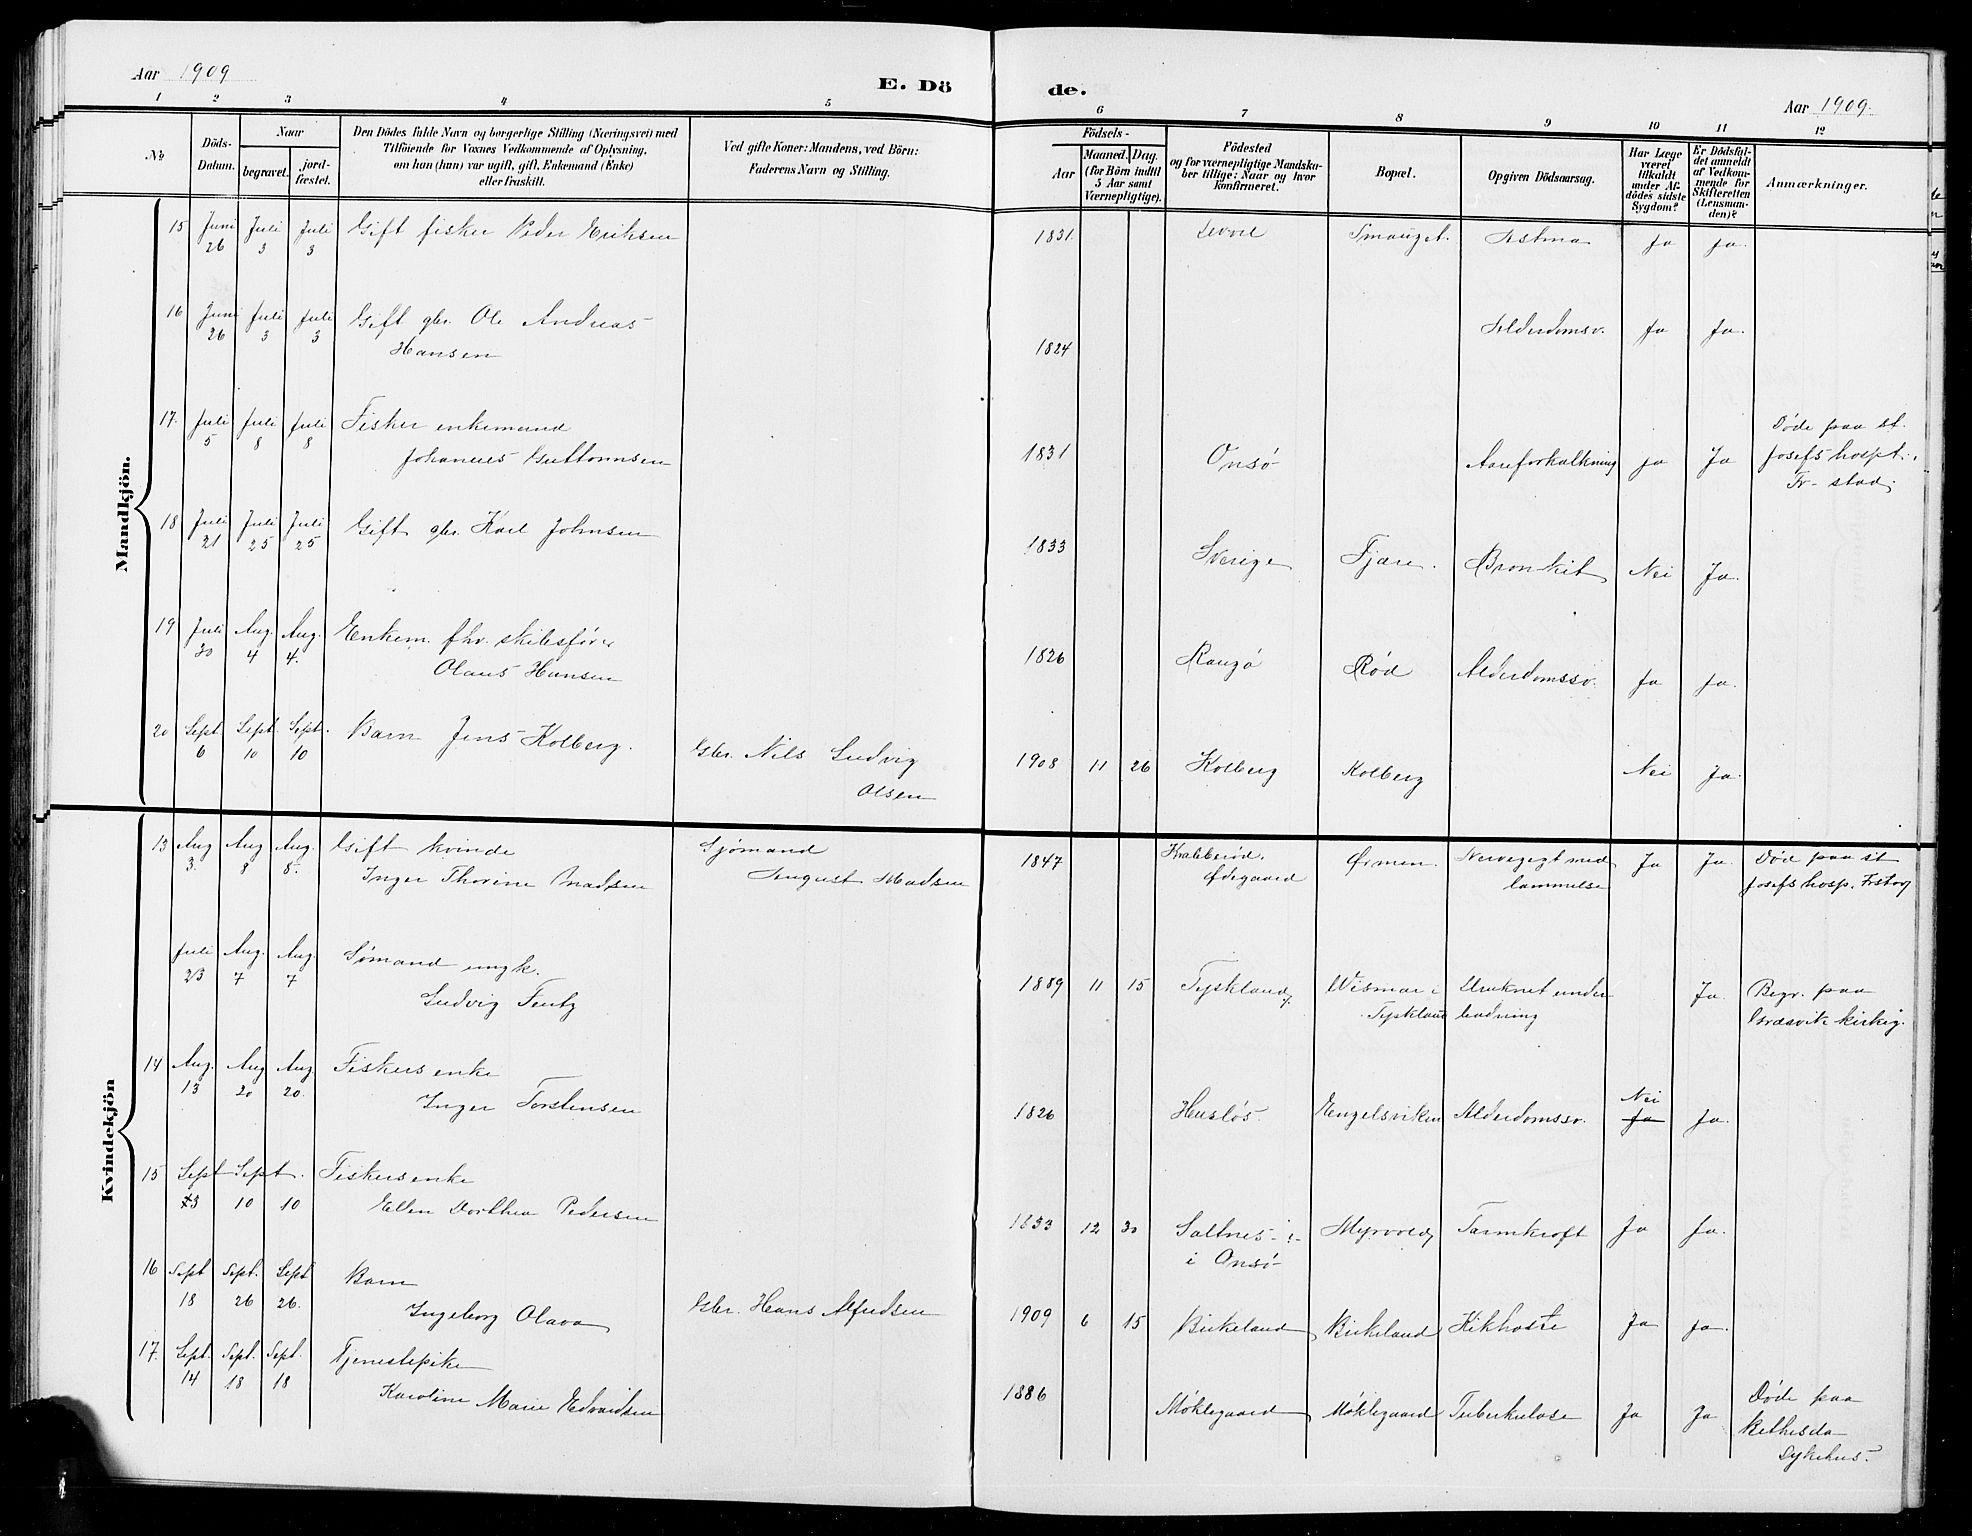 Aar 1909
E. Dö
de.
Aar 1909.
1 2 3 4 5 6 7 8 9 10 11 12
No
Döds-Datum.
Naar
begravet.
jord-fæstet.
Den Dödes fulde Navn og borgerlige Stilling (Næringsvei) med
Tilföiende for Voxnes Vedkommende af Oplysning,
om han (hun) var ugift, gift, Enkemand (Enke)
eller fraskilt.
Ved gifte Koner: Mandens, ved Börn:
Faderens Navn og Stilling.
Födsels-
Aar
Maaned. Dag.
(for Börn indtil
5 Aar samt
Værnepligtige).
Födested
og for værnepligtige Mandska-
ber tillige: Naar og hvor
konfirmeret.
Bopæl.
Opgiven Dödsaarsag.
Har Læge
været
tilkaldt
under Af-
dödes sidste
Sygdom?
Er Dödsfal-
det anmeldt
af Vedkom-
mende for
Skifteretten
(Lensman-
den)?
Anmærkninger.
Mandkjön.
15 Juni 26 Juli 3 Juli 3 Gift fisker Peder Eriksen 1831. Smauget. Astma Ja Ja.
16 Juni 26 Juli 3 Juli 3 Gift gbr. Ole Andreas
Hansen 1824 Alderdomsv. Ja Ja.
17. Juli 5 Juli 8 Juli 8 Fisker enkemand
Johannes Guttormsen 1831 Onsø Aareforkalkning Ja Ja Døde paa st.
Josefs hospt.
Fr-stad.
18 Juli 21 Juli 25 Juli 25 Gift gbr. Karl Johnsen 1833 Sverige Fjære. Bronkit Nei Ja.
19 Juli 30 Aug. 4 Aug. 4. Enkem. fhv. skibsfører
Olaus Hansen 1826 Raugø Rød Alderdomssv. Ja Ja.
20 Sept. 6 Sept. 10 Sept. 10 Barn Jens Kolberg. Gbr. Nils Ludvig
Olsen 1908 11 26 Kolberg Kolberg Nei Ja.
Kvindekjön
13 Aug 3. Aug 8 Aug. 8. Gift kvinde
Inger Thorine Madsen Sjømand
August Madsen 1847 Krabberød.
Ødegaard Ørmen. Nervegigt med
lammelse Ja Ja. Død paa st
Josefs hosp. Frstad
Juli 23 Aug. 7 Aug. 7 Sømand ungk.
Ludvig Fentz 1889 11 15 Tyskland Wismar i
Tyskland Druknet under
badning Ja. Begr. paa
Græsvik kirkeg.
14 Aug. 13 Aug 20 Aug 20. Fiskers enke
Inger Torstensen 1826 Husløs. Engelsviken Alderdomssv. Nei
Ja Ja.
15 Sept 3 Sept. 10 10 Fiskers enke
Ellen Dorthea Pedersen 1833 12 30 Saltnes i
i Onsø Myrvold Tarmkræft Ja Ja.
16 Sept 18 Sept. 26 Sept 26. Barn
Ingeborg Olava Gbr. Hans Alfredsen 1909 6 15 Birkeland Birkeland Kikhoste Ja Ja.
17. Sept. 14 Sept. 18 Sept. 18 Tjenestepike
Karoline Marie Edvardsen 1886 Møklegaard Møklegaard Tuberkulose Ja Ja Døde paa
Bethesda
sykehus.